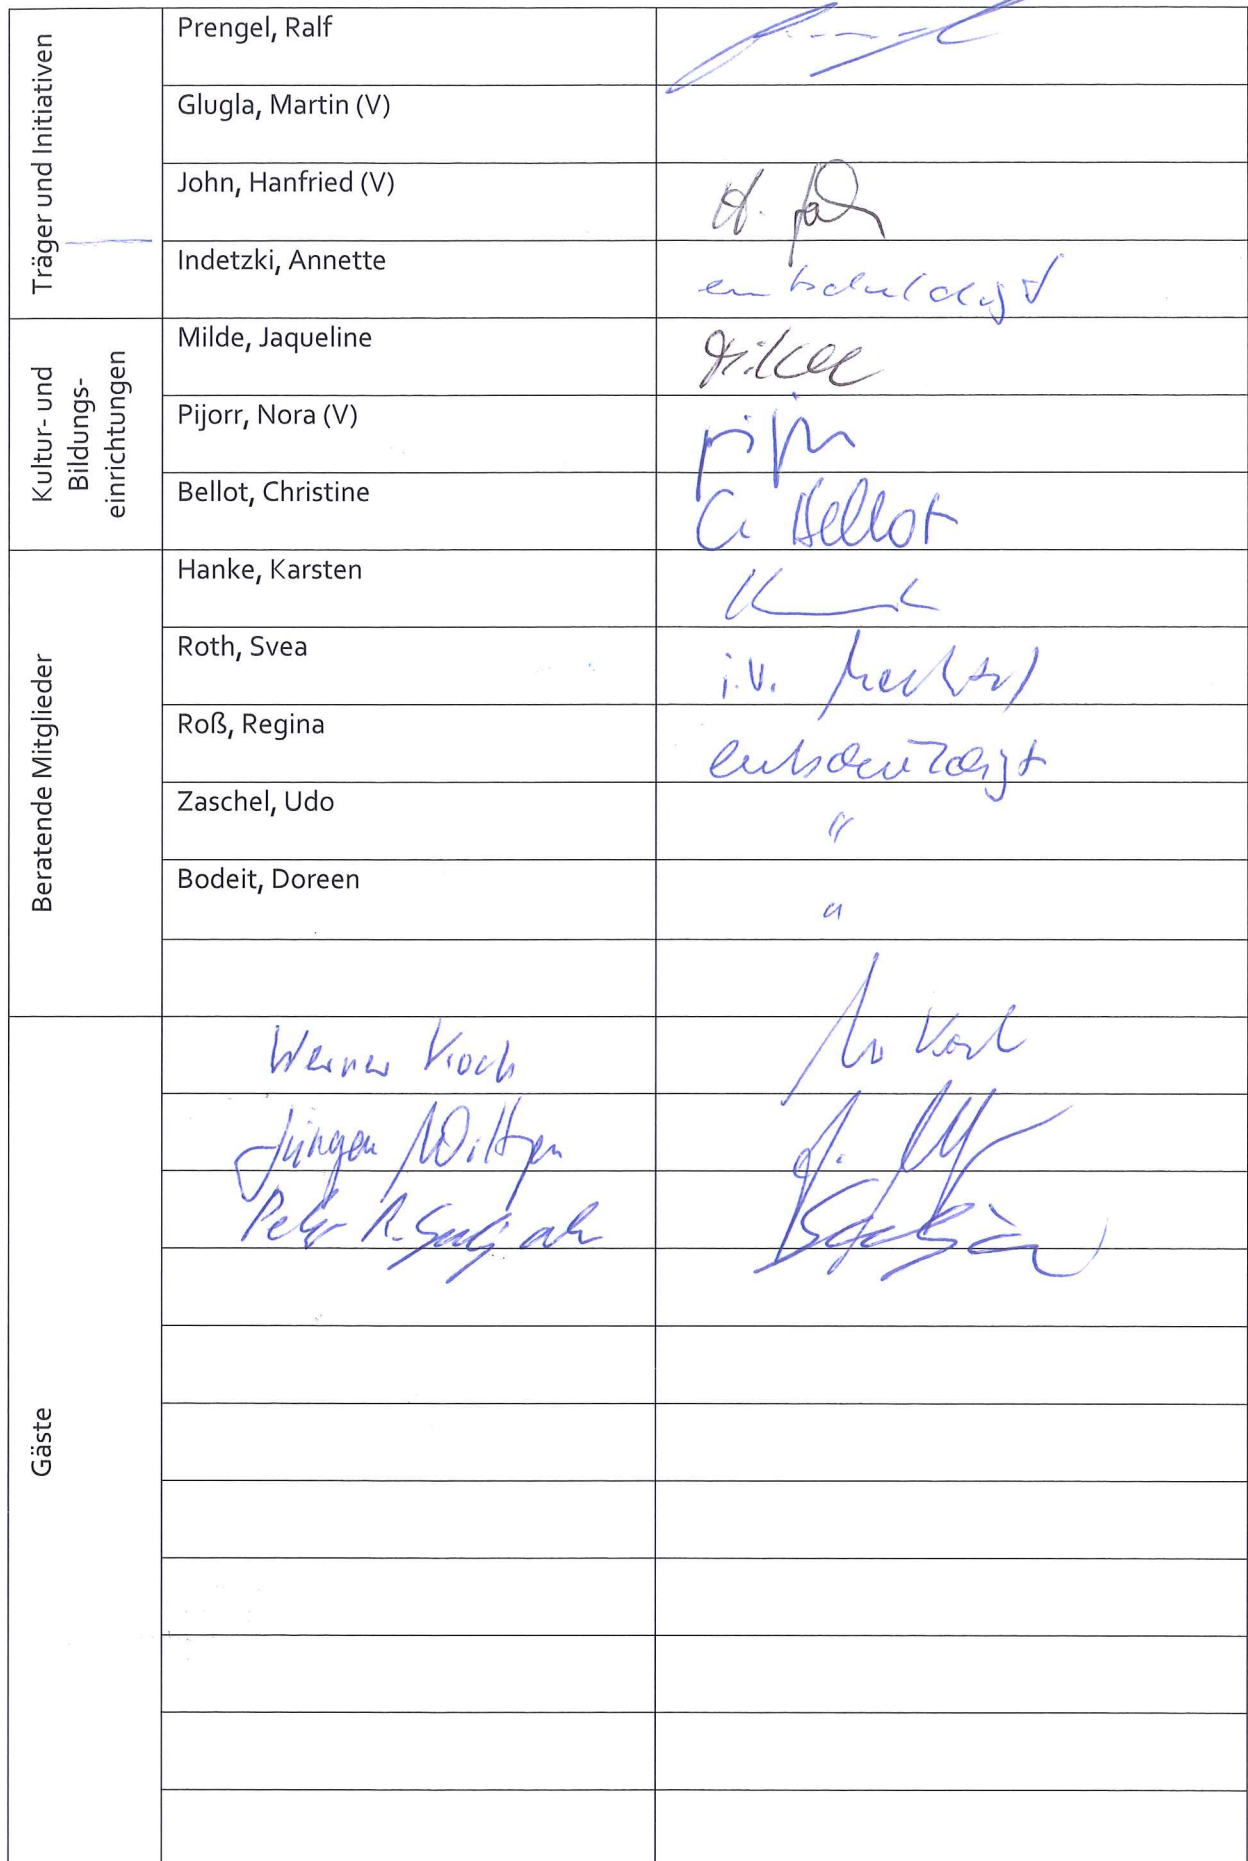 Träger und Initiativen
Prengel, Ralf
Glugla, Martin (V)
John, Hanfried (V)
H. John
Indetzki, Annette
entschuldigt
Kultur- und
Bildungs-
einrichtungen
Milde, Jaqueline
Milde
Pijorr, Nora (V)
Bellot, Christine
C. Bellot
Beratende Mitglieder
Hanke, Karsten
Roth, Svea
i.V.
Roß, Regina
entschuldigt
Zaschel, Udo
"
Bodeit, Doreen
"
Gäste
Werner Koch
Koch
Jürgen
J.
Peter R.